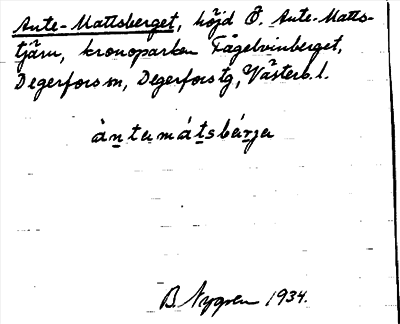 Ante-Mattsberget, höjd Ö. Ante-Matts-
tjärn, kronoparken Fågelvinberget,
Degerfors sn, Degerfors tg, Västerb. l.
àntəmátsbárjə
B. Nygren 1934.